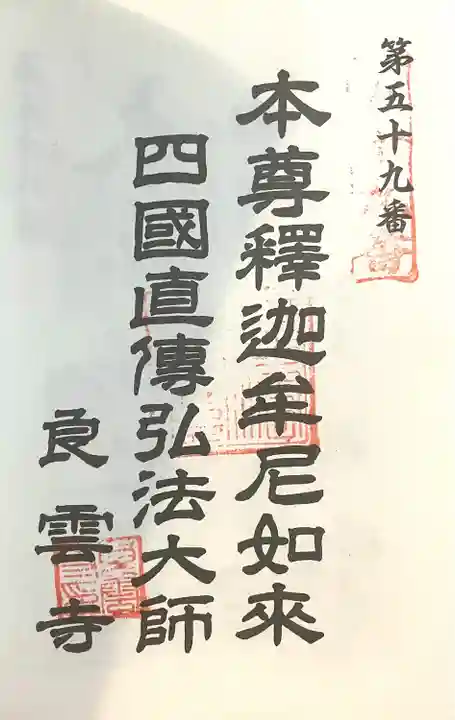 第五十九番
本尊釋迦牟尼如來
四國直傳弘法大師
良雲寺